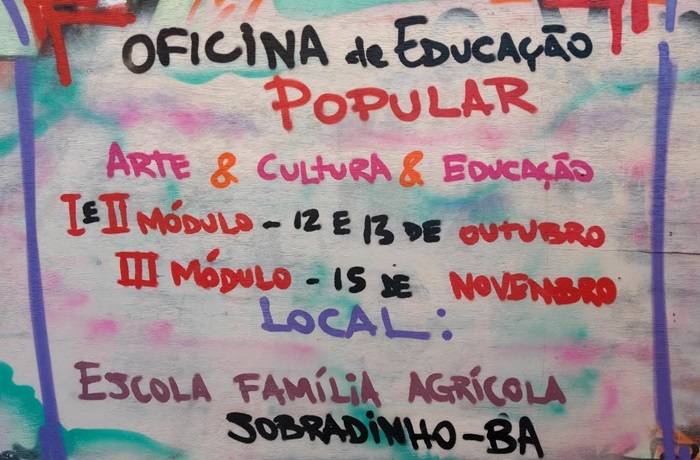 OFICINA de EDUCAÇÃO
POPULAR
ARTE & CULTURA & EDUCAÇÃO
I E II MÓDULO - 12 E 13 DE OUTUBRO
III MÓDULO - 15 DE NOVEMBRO
LOCAL:
ESCOLA FAMÍLIA AGRÍCOLA
SOBRADINHO-BA